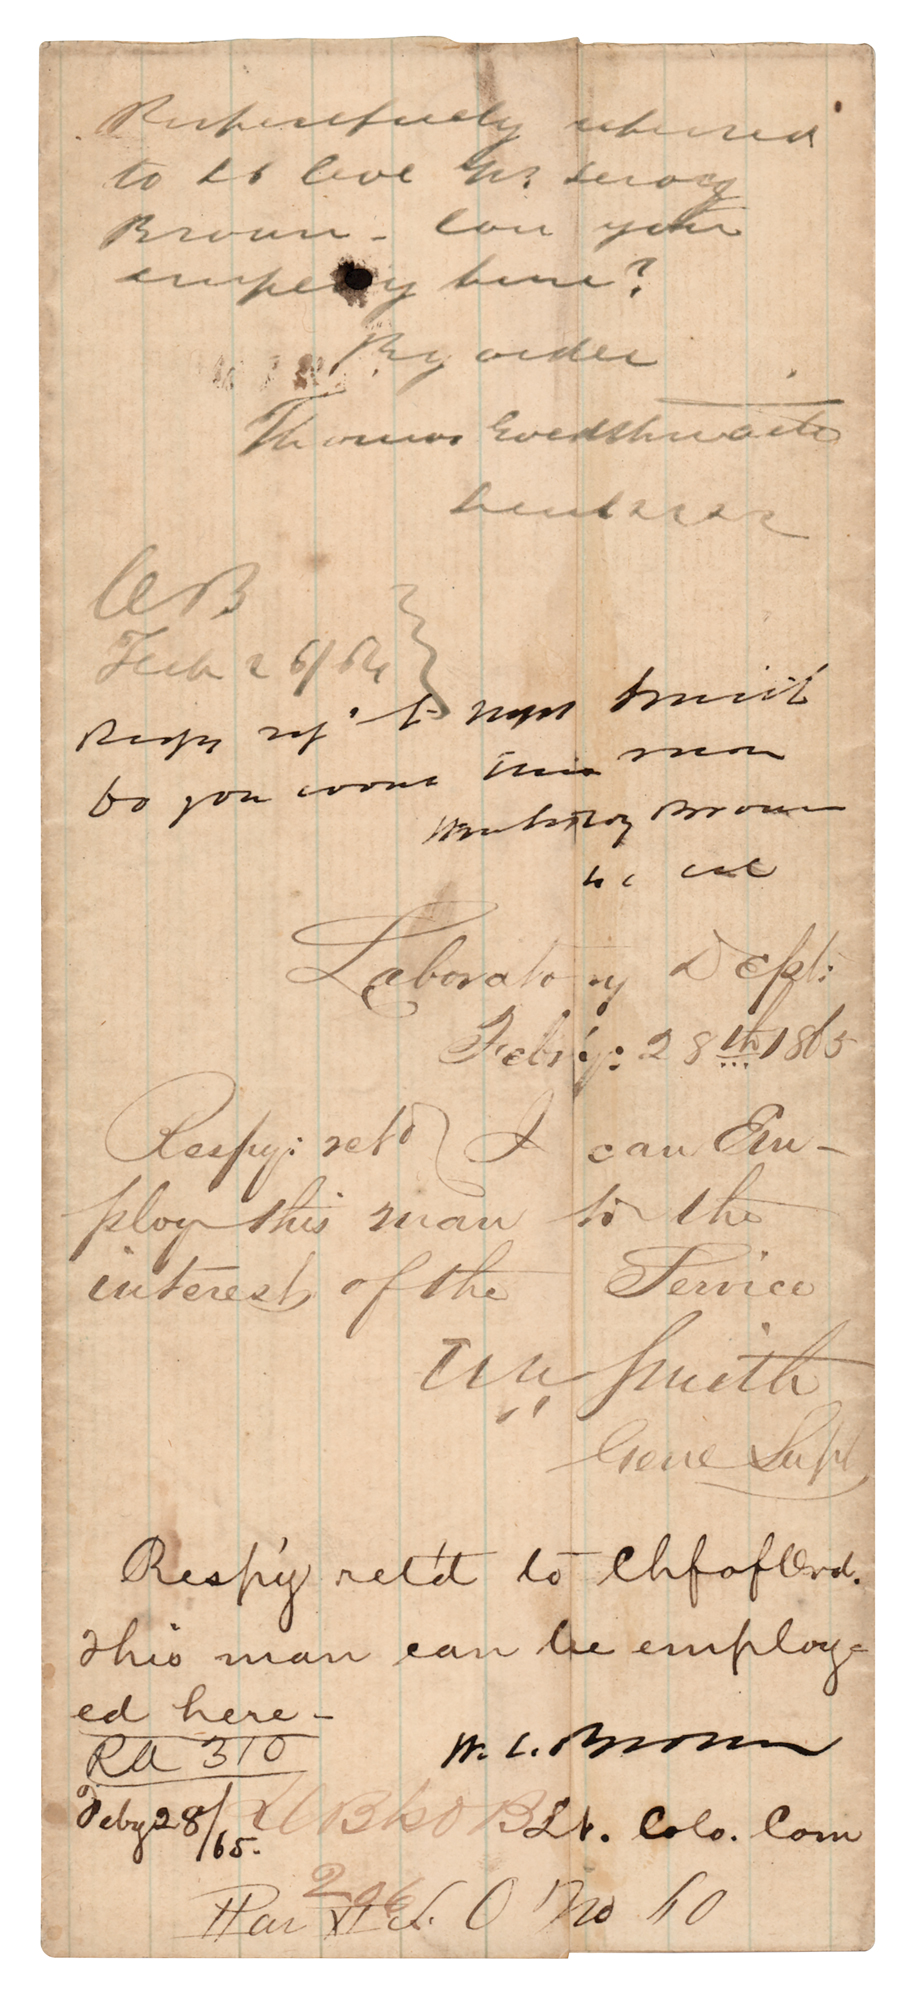 Respectfully referred
to Lt Col Wm Leroy
Brown - Can you
employ him?
By order
Thomas Goldthwaite
OB
Feb 26/
Respy ref'd to Supt Smith
Do you want this man
Wm LeRoy Brown
Lt Col
Laboratory Dept:
Feb'ry: 28th 1865
Respy: retd } I can Em-
ploy this man to the
interest of the Service
Wm Smith
Genl Supt
Resp'y ret'd to Chf of Ord.
This man can be employ-
ed here -
RA 310
W. L. Brown
Feby 28/65.
Lt. Colo. Com
296
Par O No